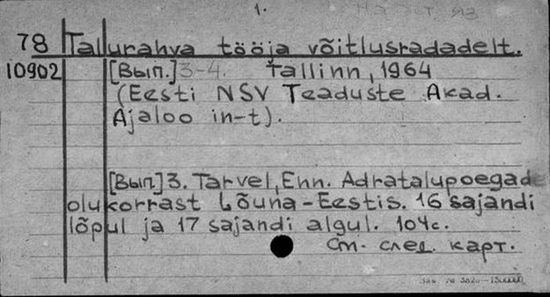 1.
78 Tallurahva tööja võitlusradadelt.
10902 [Вып.] 3-4. Tallinn, 1964
(Eesti NSV Teaduste Akad.
Ajaloo in-t).
[Вып.] 3. Tarvel, Enn. Adratalupoegade
olukorrast Lõuna-Eestis. 16 sajandi
lõpul ja 17 sajandi algul. 104c.
См. след. карт.